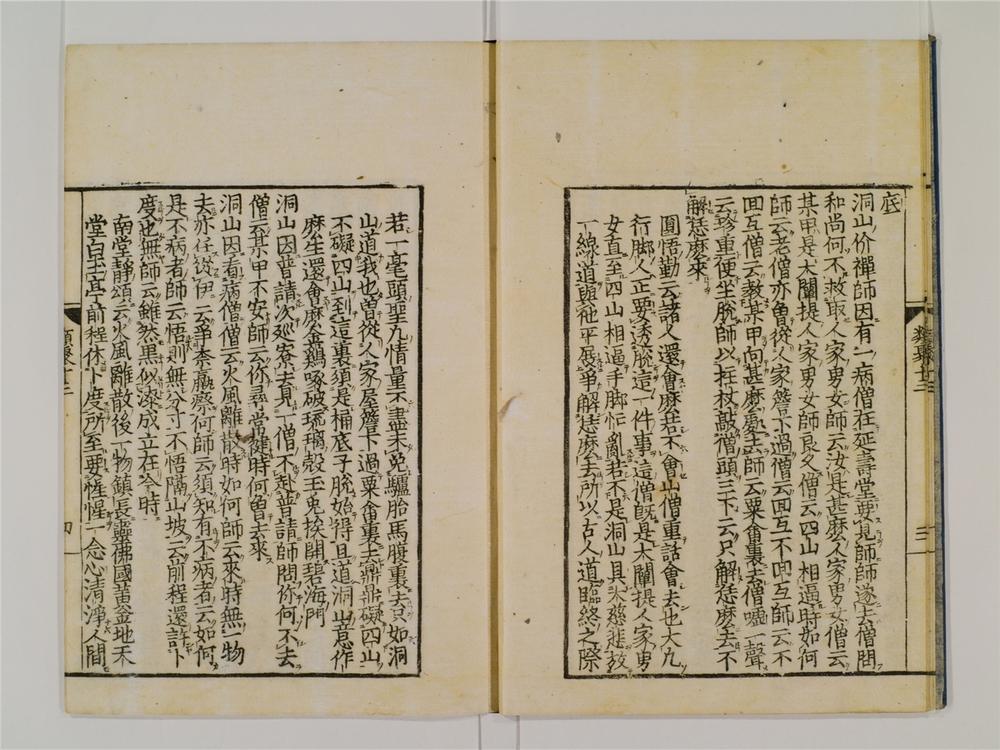 底
洞山价禪師因有一病僧在延壽堂要見師師遂去僧問
和尚何不救取人家男女師云汝是甚麼人家男女僧云
某甲是大闡提人家男女師良久僧云四山相逼時如何
師云老僧亦曾從人家簷下過僧云回互不回互師云不
回互僧云教某甲向甚麼處去師云粟畬裏去僧噓一聲
云珍重便坐脫師以拄杖敲僧頭三下云只解恁麼去不
解恁麼來
圓悟勤云諸人還會麼若不會山僧重話會去也大凡
行脚人正要透脫這一件事這僧既是大闡提人家男
女直至四山相逼手脚忙亂若不是洞山具大慈悲放
一線道與他平展爭解恁麼去所以古人道臨終之際
三
若一毫頭聖凡情量不盡未免驢胎馬腹裏去只如洞
山道我也曾從人家屋簷下過粟畬裏去鼎鼎礙四山
不礙四山到這裏須是桶底子脫始得且道洞山意作
麼生還會麼金鷄啄破琉璃殼玉兎挨開碧海門
洞山因普請次巡寮去見一僧不赴普請師問你何不去
僧云某甲不安師云你尋常健時何曾去來
洞山因看病僧僧云火風離散時如何師云來時無一物
去亦任從伊云爭奈羸瘵何師云須知有不病者云如何
是不病者師云悟則無分寸不悟隔山坡云前程還許卜
度也無師云雖然黑似漆成立在今時
南堂靜頌云火風離散後一物鎮長靈佛國黃金地天
堂白玉亭前程休卜度所至要惺惺一念心清淨人間
四